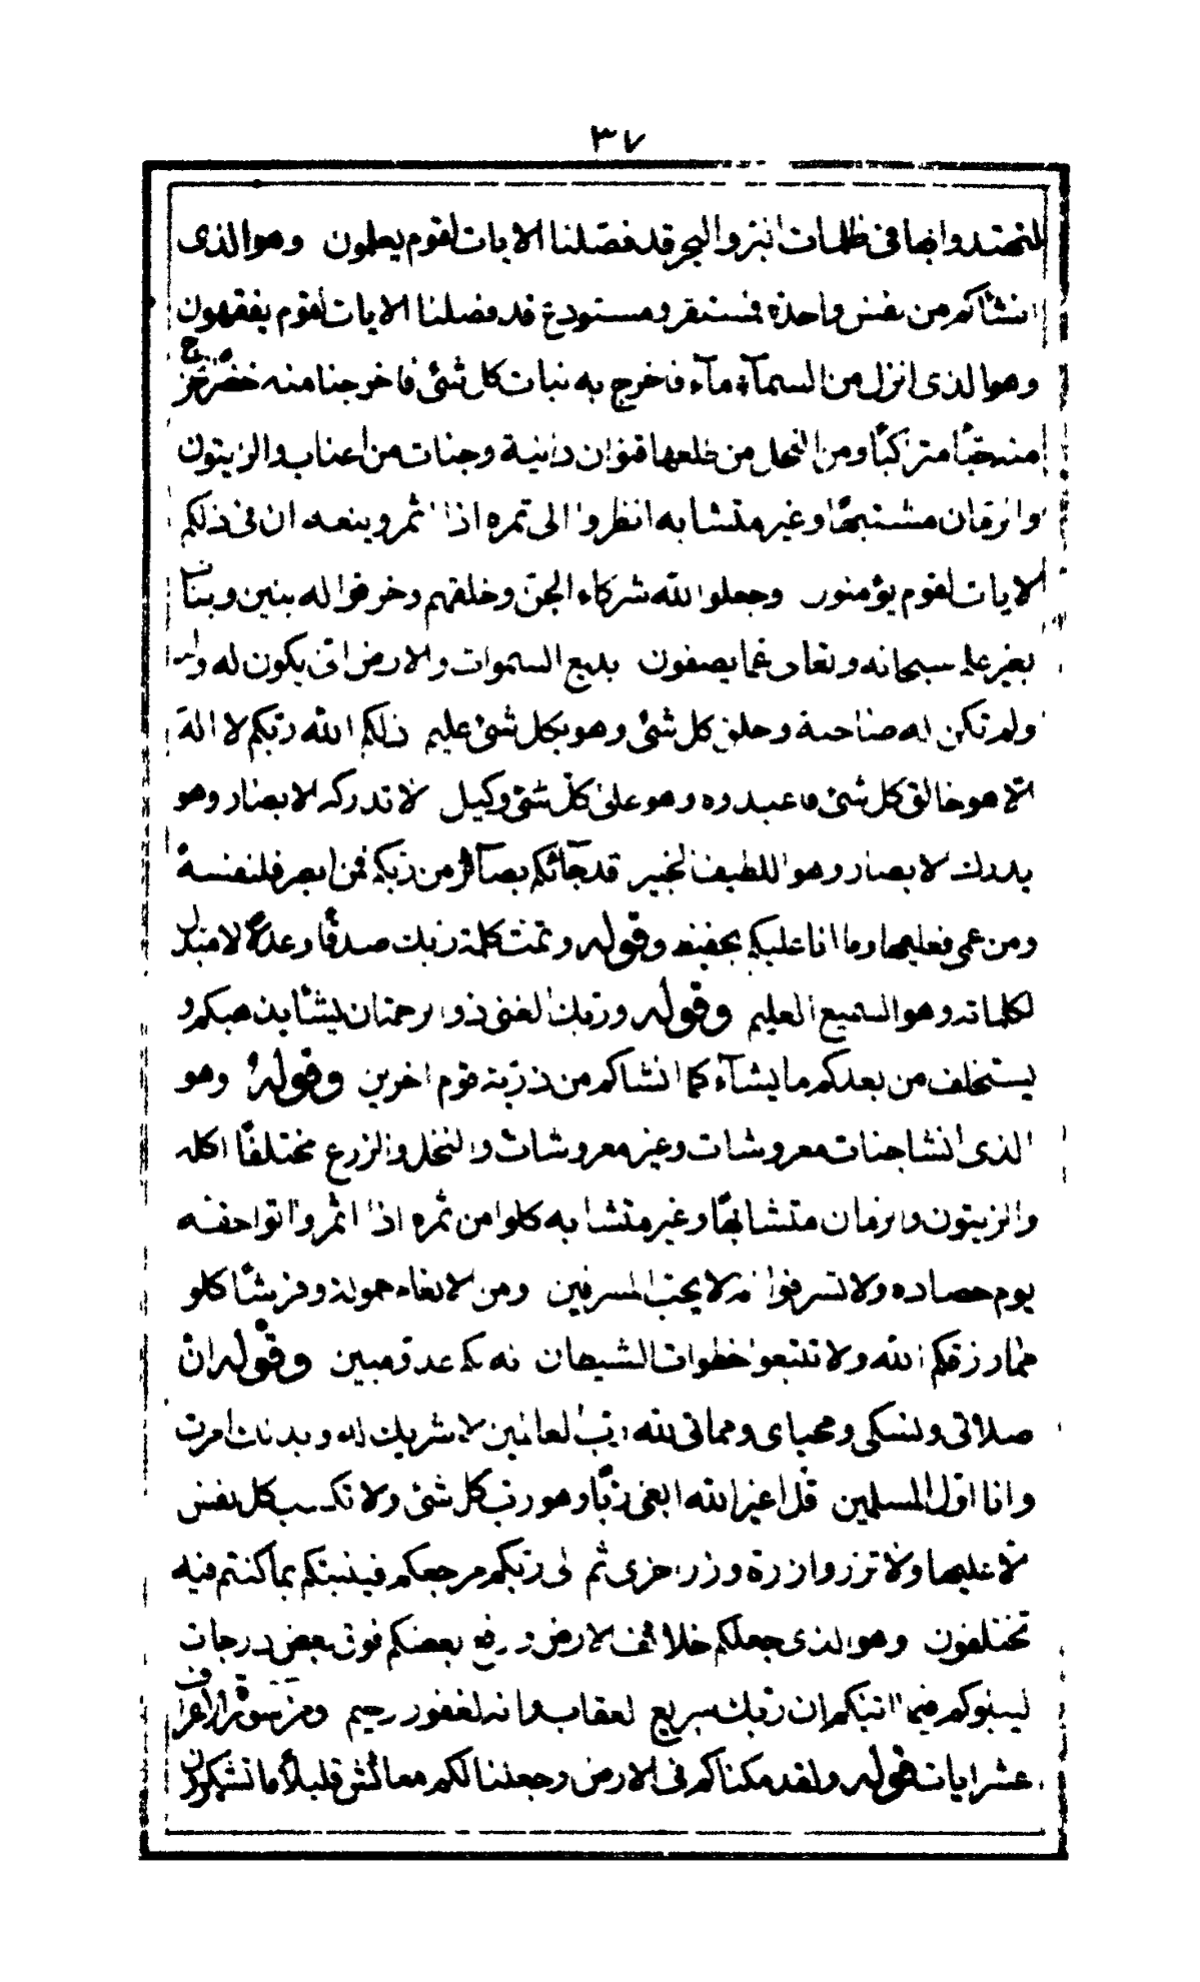 ٣٧
لتهتدوا بها في ظلمات البر والبحر قد فصلنا الايات لقوم يعلمون وهو الذى
انشأكم من نفس واحدة فمستقر ومستودع قد فصلنا الايات لقوم يفقهون
وهو الذى انزل من السمآء مآء فاخرج به نبات كل شئ فاخرجنا منه خضرا نخرج
منه حبًا متراكبًا ومن النخل من طلعها قنوان دانية وجنات من اعناب والزيتون
والرمان مشتبهًا وغير متشابه انظروا الى ثمره اذا اثمر وينعه ان فى ذلكم
لايات لقوم يؤمنون وجعلوا لله شركاء الجن وخلقهم وخرقوا له بنين وبنات
بغير علم سبحانه وتعالى عما يصفون بديع السموات والارض انى يكون له ولد
ولم تكن له صاحبة وخلق كل شئ وهو بكل شئ عليم ذلكم الله ربكم لا اله
الا هو خالق كل شئ فاعبدوه وهو على كل شئ وكيل لا تدركه الابصار وهو
يدرك الابصار وهو اللطيف الخبير قد جآئكم بصآئر من ربكم فمن ابصر فلنفسه
ومن عمى فعليها وما انا عليكم بحفيظ وقوله وتمت كلمة ربك صدقًا وعدلًا لا مبدل
لكلماته وهو السميع العليم وقوله وربك الغنى ذو الرحمة ان يشأ يذهبكم و
يستخلف من بعدكم ما يشآء كما انشاكم من ذرية قوم اخرين وقوله وهو
الذى انشا جنات معروشات وغير معروشات والنخل والزرع مختلفًا اكله
والزيتون والرمان متشابهًا وغير متشابه كلوا من ثمره اذا اثمر واتوا حقه
يوم حصاده ولا تسرفوا انه لا يحب المسرفين ومن الانعام حمولة وفرشًا كلو
مما رزقكم الله ولا تتبعوا خطوات الشيطان انه لكم عدو مبين وقوله ان
صلاتى ونسكى ومحياى ومماتى لله رب العالمين لا شريك له وبذلك امرت
وانا اول المسلمين قل اغير الله ابغى ربًا وهو رب كل شئ ولا تكسب كل نفس
الا عليها ولا تزر وازرة وزر اخرى ثم الى ربكم مرجعكم فينبئكم بما كنتم فيه
تختلفون وهو الذى جعلكم خلائف الارض ورفع بعضكم فوق بعض درجات
ليبلوكم فيما اتيكم ان ربك سريع العقاب وانه لغفور رحيم ومن سورة الاعراف
عشر ايات قوله ولقد مكناكم فى الارض وجعلنا لكم معائش قليلًا ما تشكرون